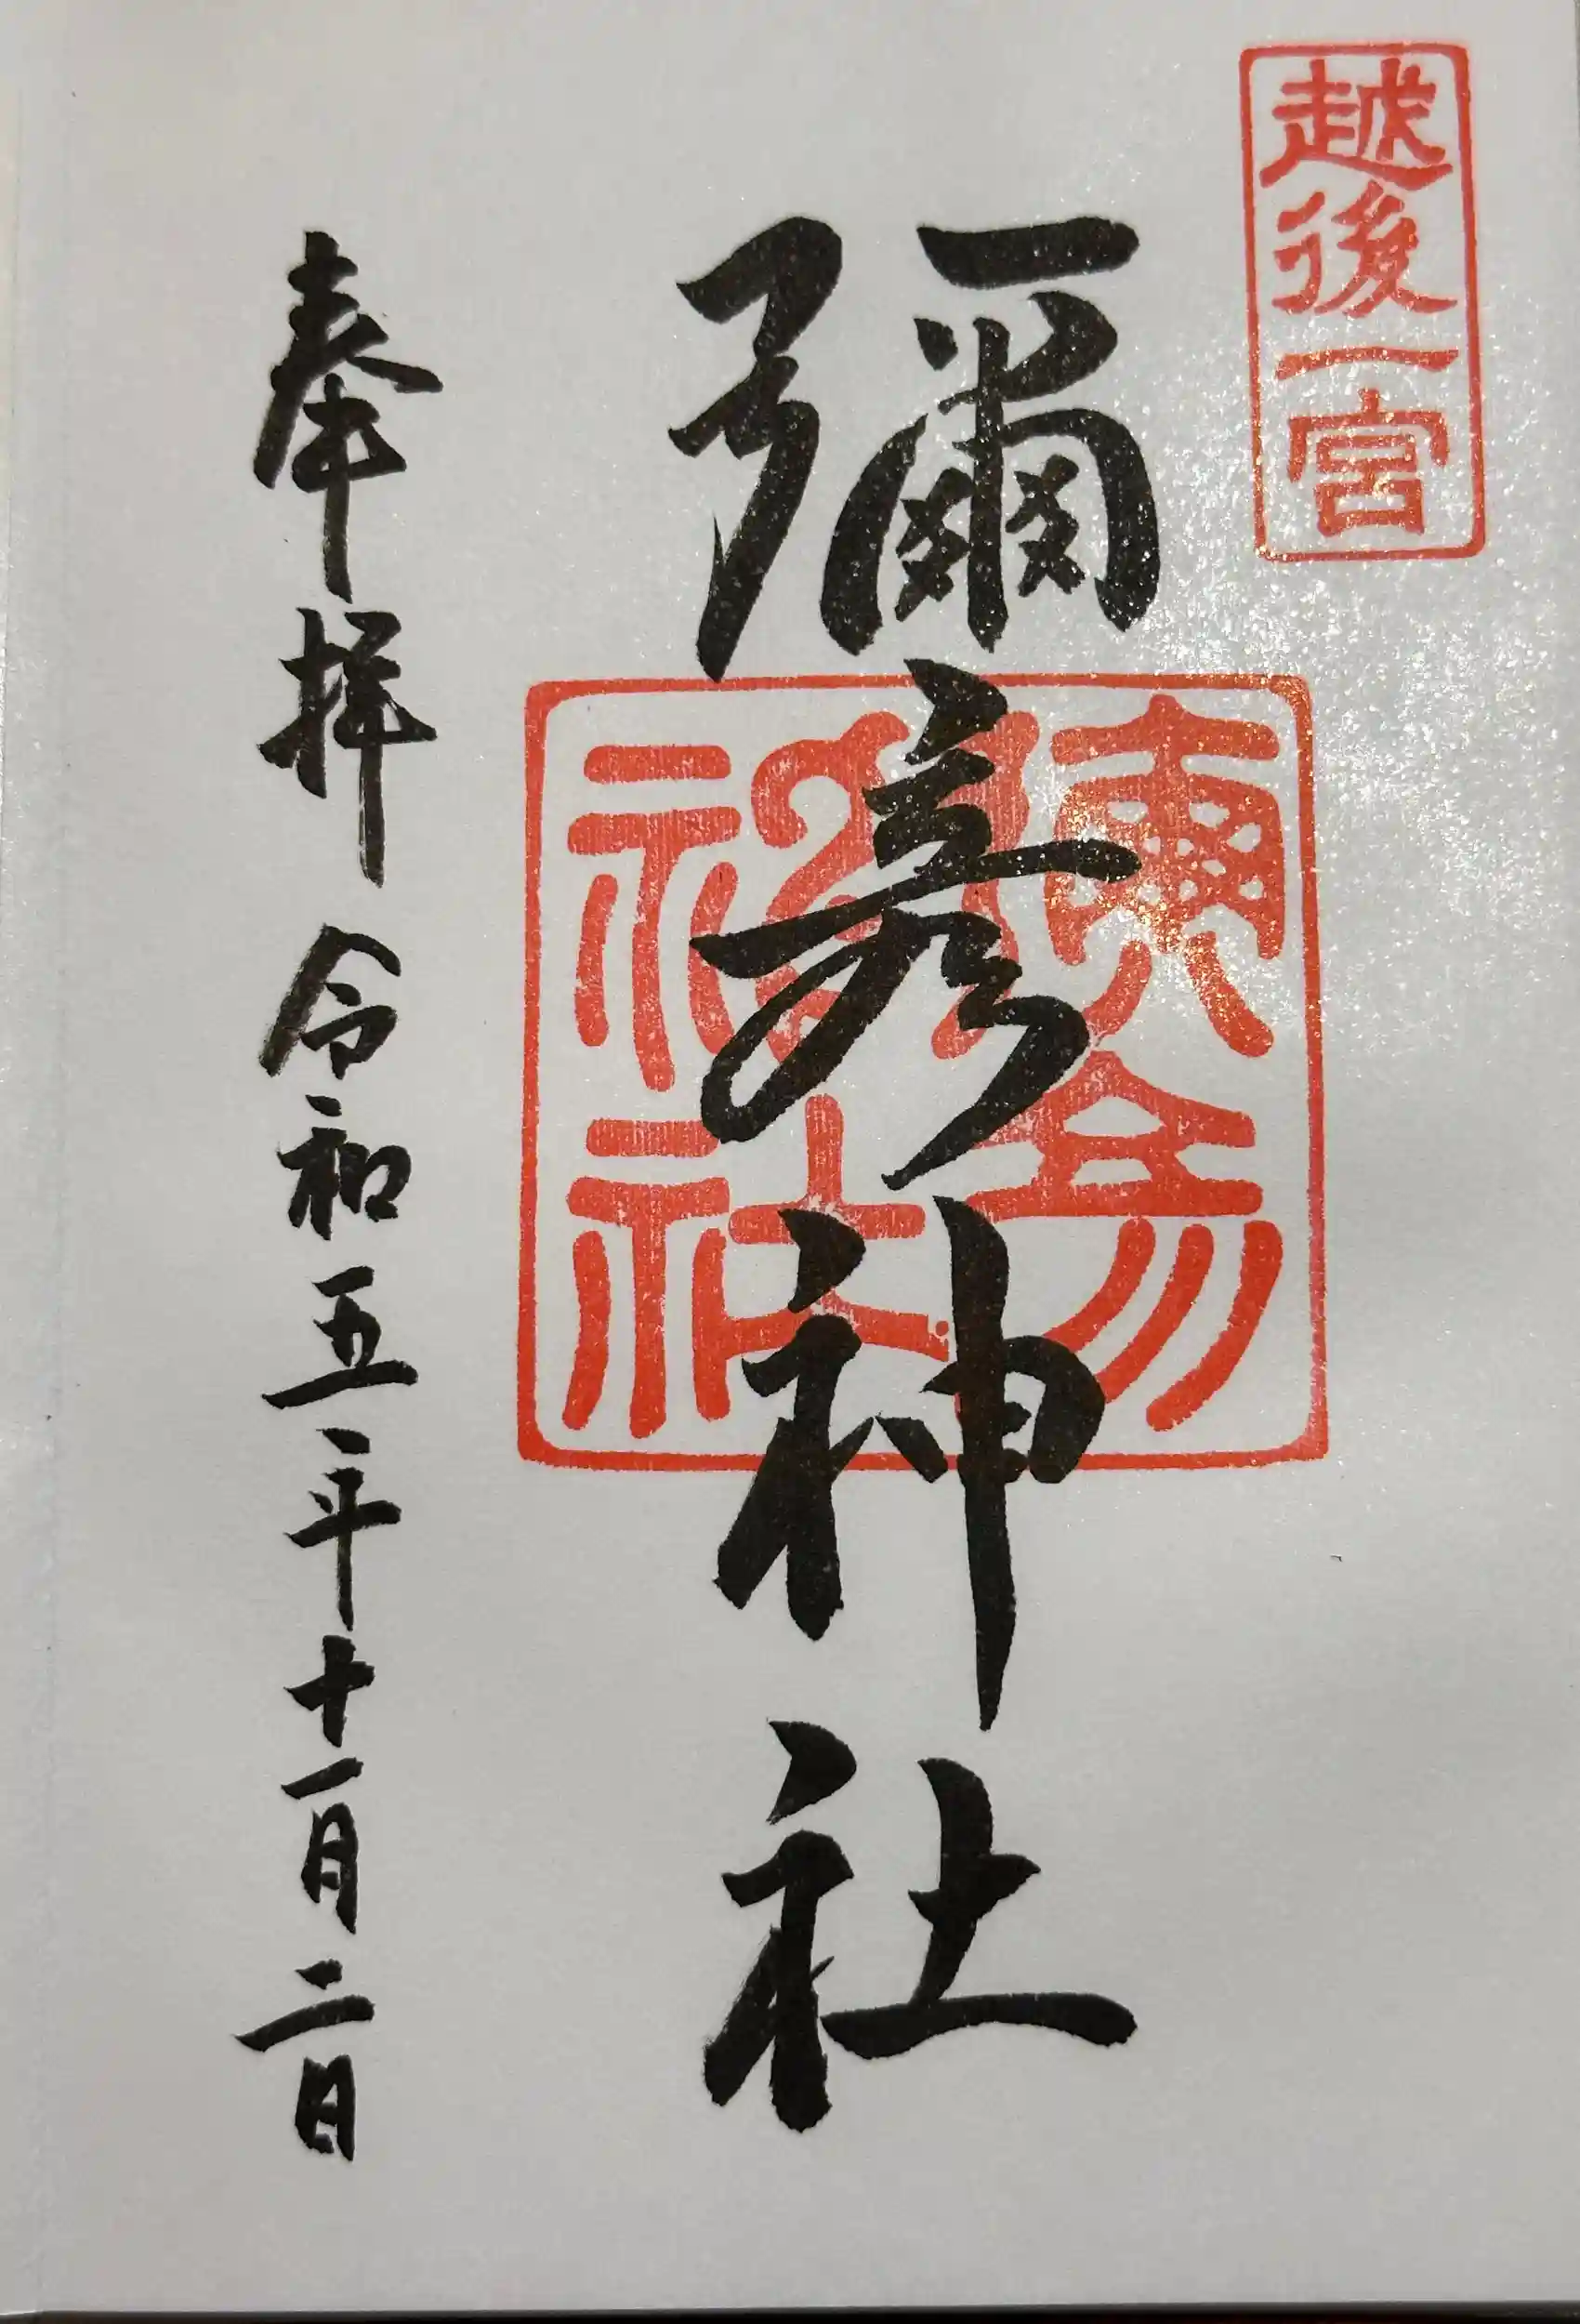 越後一宮
彌彦神社
彌彦神社
奉拝 令和五年十一月二日